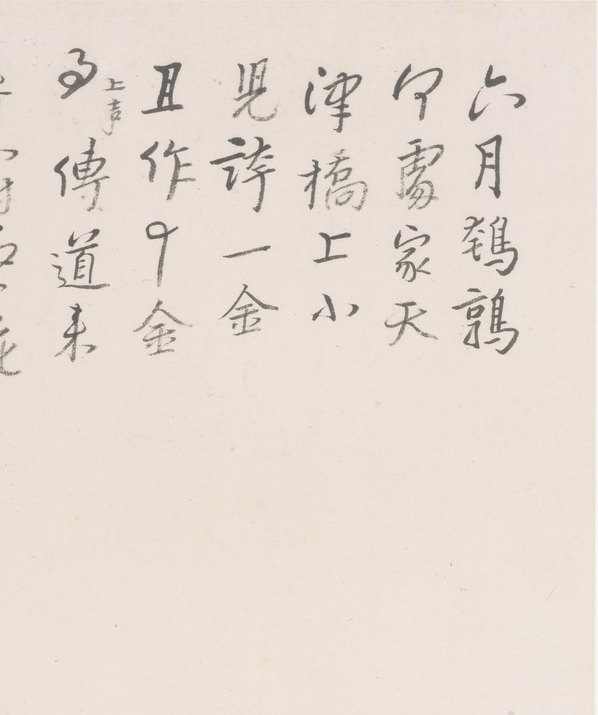 六月鵪鶉
何處家天
津橋上小
兒誇一金
且作千金
上声傳道來